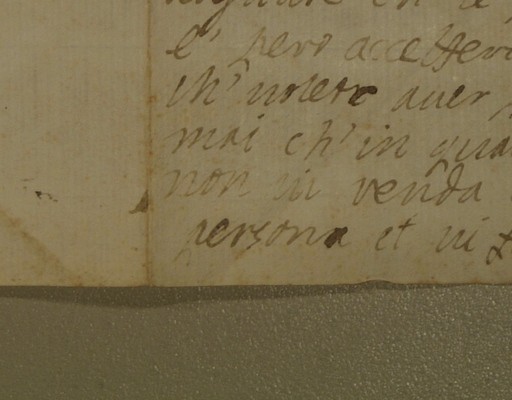 e' pero accetter
ch' volete auer
mai ch' in qua
non vi venda
persona et vi